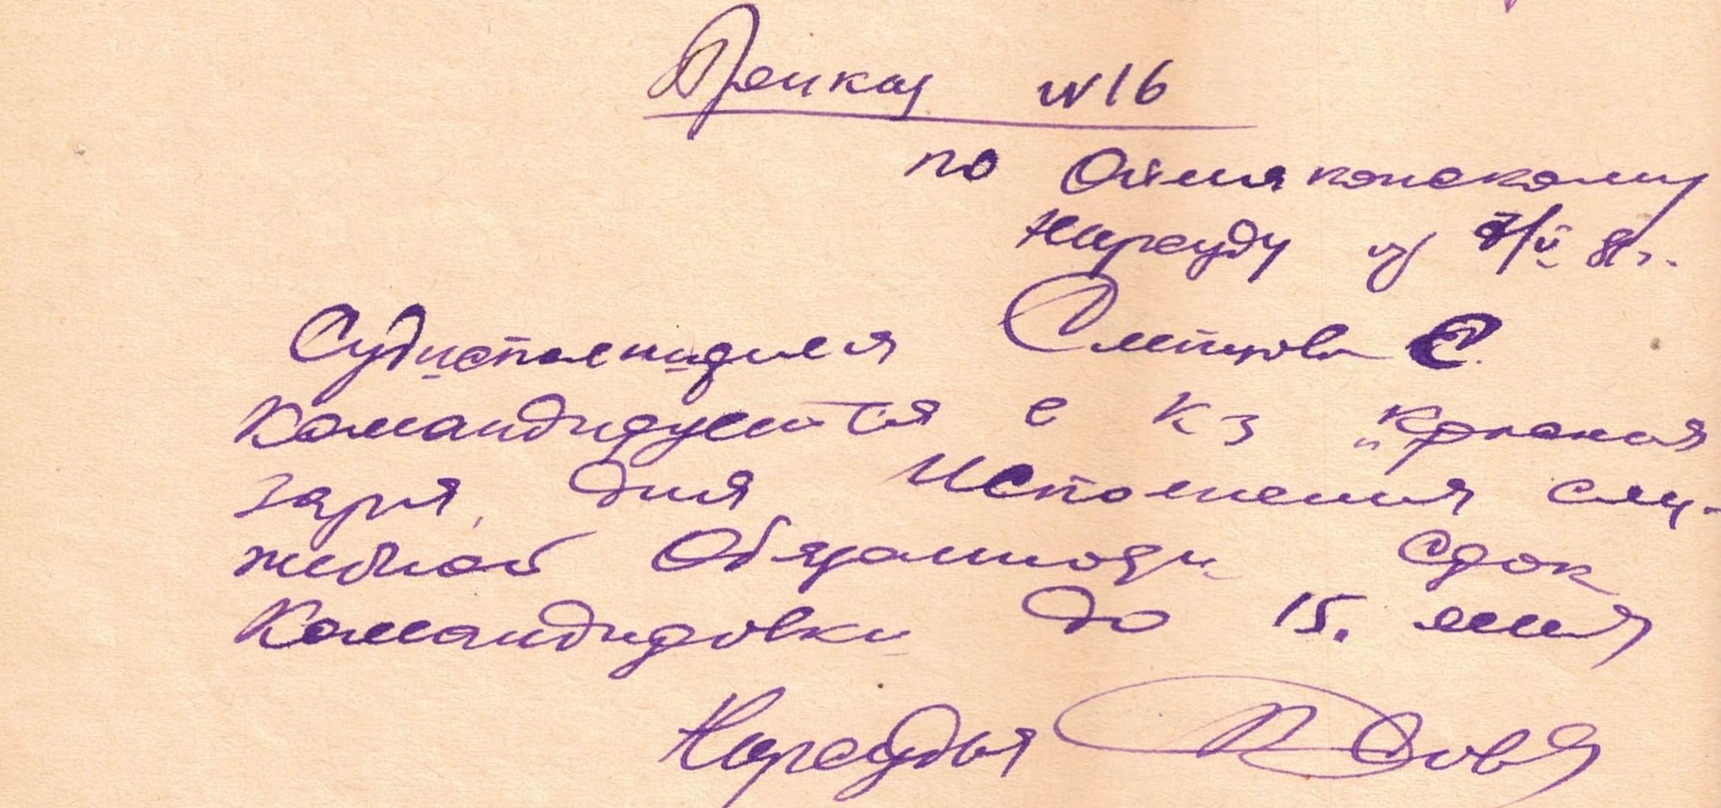 Приказ №16
по Оймяконскому
Нарсуду от 7/V
Судисполнителя Слепцова С.
Командируется в кз „Красная
заря, для Исполнения слу-
жебной Обязанности срок
Командировки до 15. мая
Нарсудья